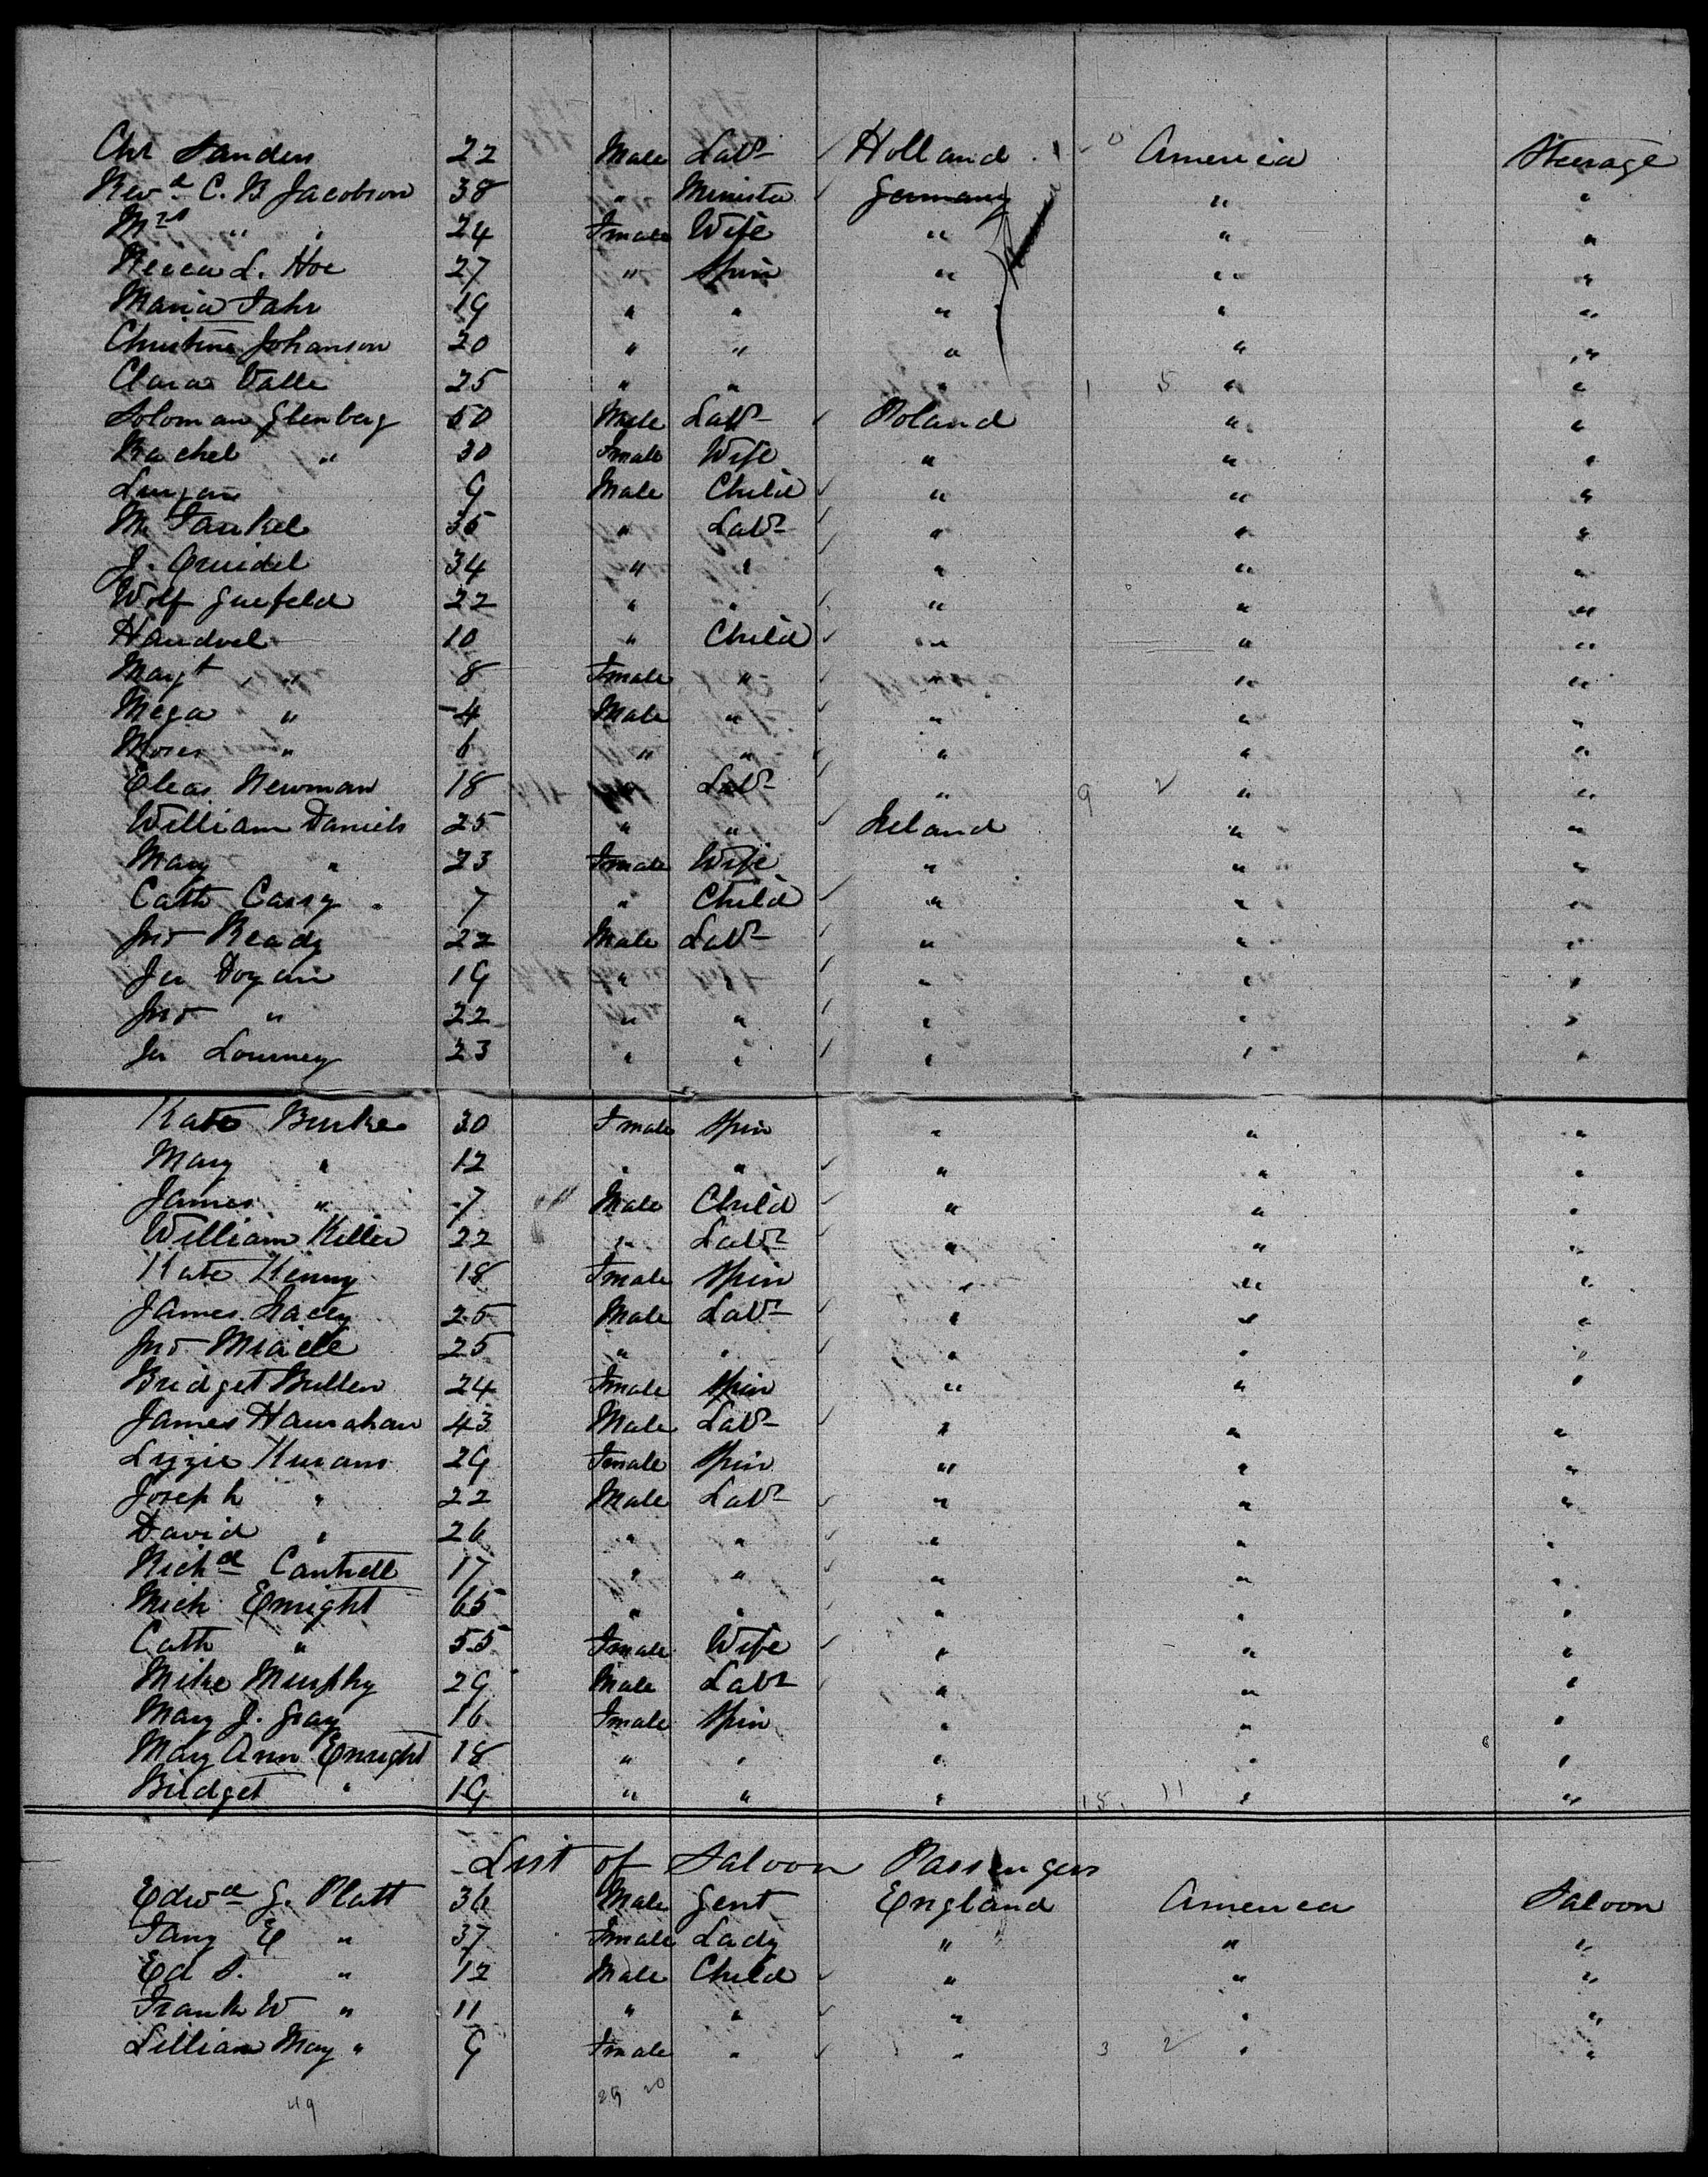 Chr Sanders 22 Male Labr Holland America Steerage
Revd C. B Jacobson 38 " Minister Germany " "
Mrs " " 24 Fmale Wife " " "
L. Hoe 27 " Spin " " "
Maria Fahr 19 " " " " "
Christine Johanson 20 " " " " "
Clara Valle 25 " " " 1 5 " "
Soloman Glenberg 50 Male Labr Poland " "
Rachel " 30 Fmale Wife " " "
9 Male Child " " "
M Fankel 35 " Labr " " "
J. 34 " " " " "
Wolf 22 " " " " "
10 " Child " " "
Margt " 8 Fmale " " " "
Mega " 4 Male " " " "
Moses " 6 " " " " "
Eleas Newman 18 Labr " 9 2 " "
William Daniels 25 " " Ireland " "
Mary " 23 Fmale Wife " " "
Cath Casey " 7 " Child " " "
Jno Ready 22 Male Labr " " "
Jer 19 " " " " "
Jno " 22 " " " " "
Jer Lourney 23 " " " " "
Kate Burke 30 Fmale Spin " " "
Mary " 12 " " " " "
James " 7 Male Child " " "
William Killer 22 " Labr " " "
Kate Kenny 18 Fmale Spin " " "
James Lacey 25 Male Labr " " "
Jno 25 " " " " "
Bridget Bullen 24 Fmale Spin " " "
James Hanrahan 43 Male Labr " " "
Lizzie Kurans 29 Fmale Spin " " "
Joseph " 22 Male Labr " " "
David " 26 " " " " "
Richd Cantrell 17 " " " " "
Mich Enright 65 " " " " "
Cath " 55 Fmale Wife " " "
Mike Murphy 29 Male Labr " " "
Mary J. Gray 16 Fmale Spin " " "
Mary Ann Enright 18 " " " " "
Bridget " 19 " " " 18 11 " "
List of Saloon Passengers
Edwd G. Platt 36 Male Gent England America Saloon
Fany E " 37 Fmale Lady " " "
Ed S. " 12 Male Child " " "
Frank W " 11 " " " " "
Lillian May " 9 Fmale " " 3 2 " "
49 29 20